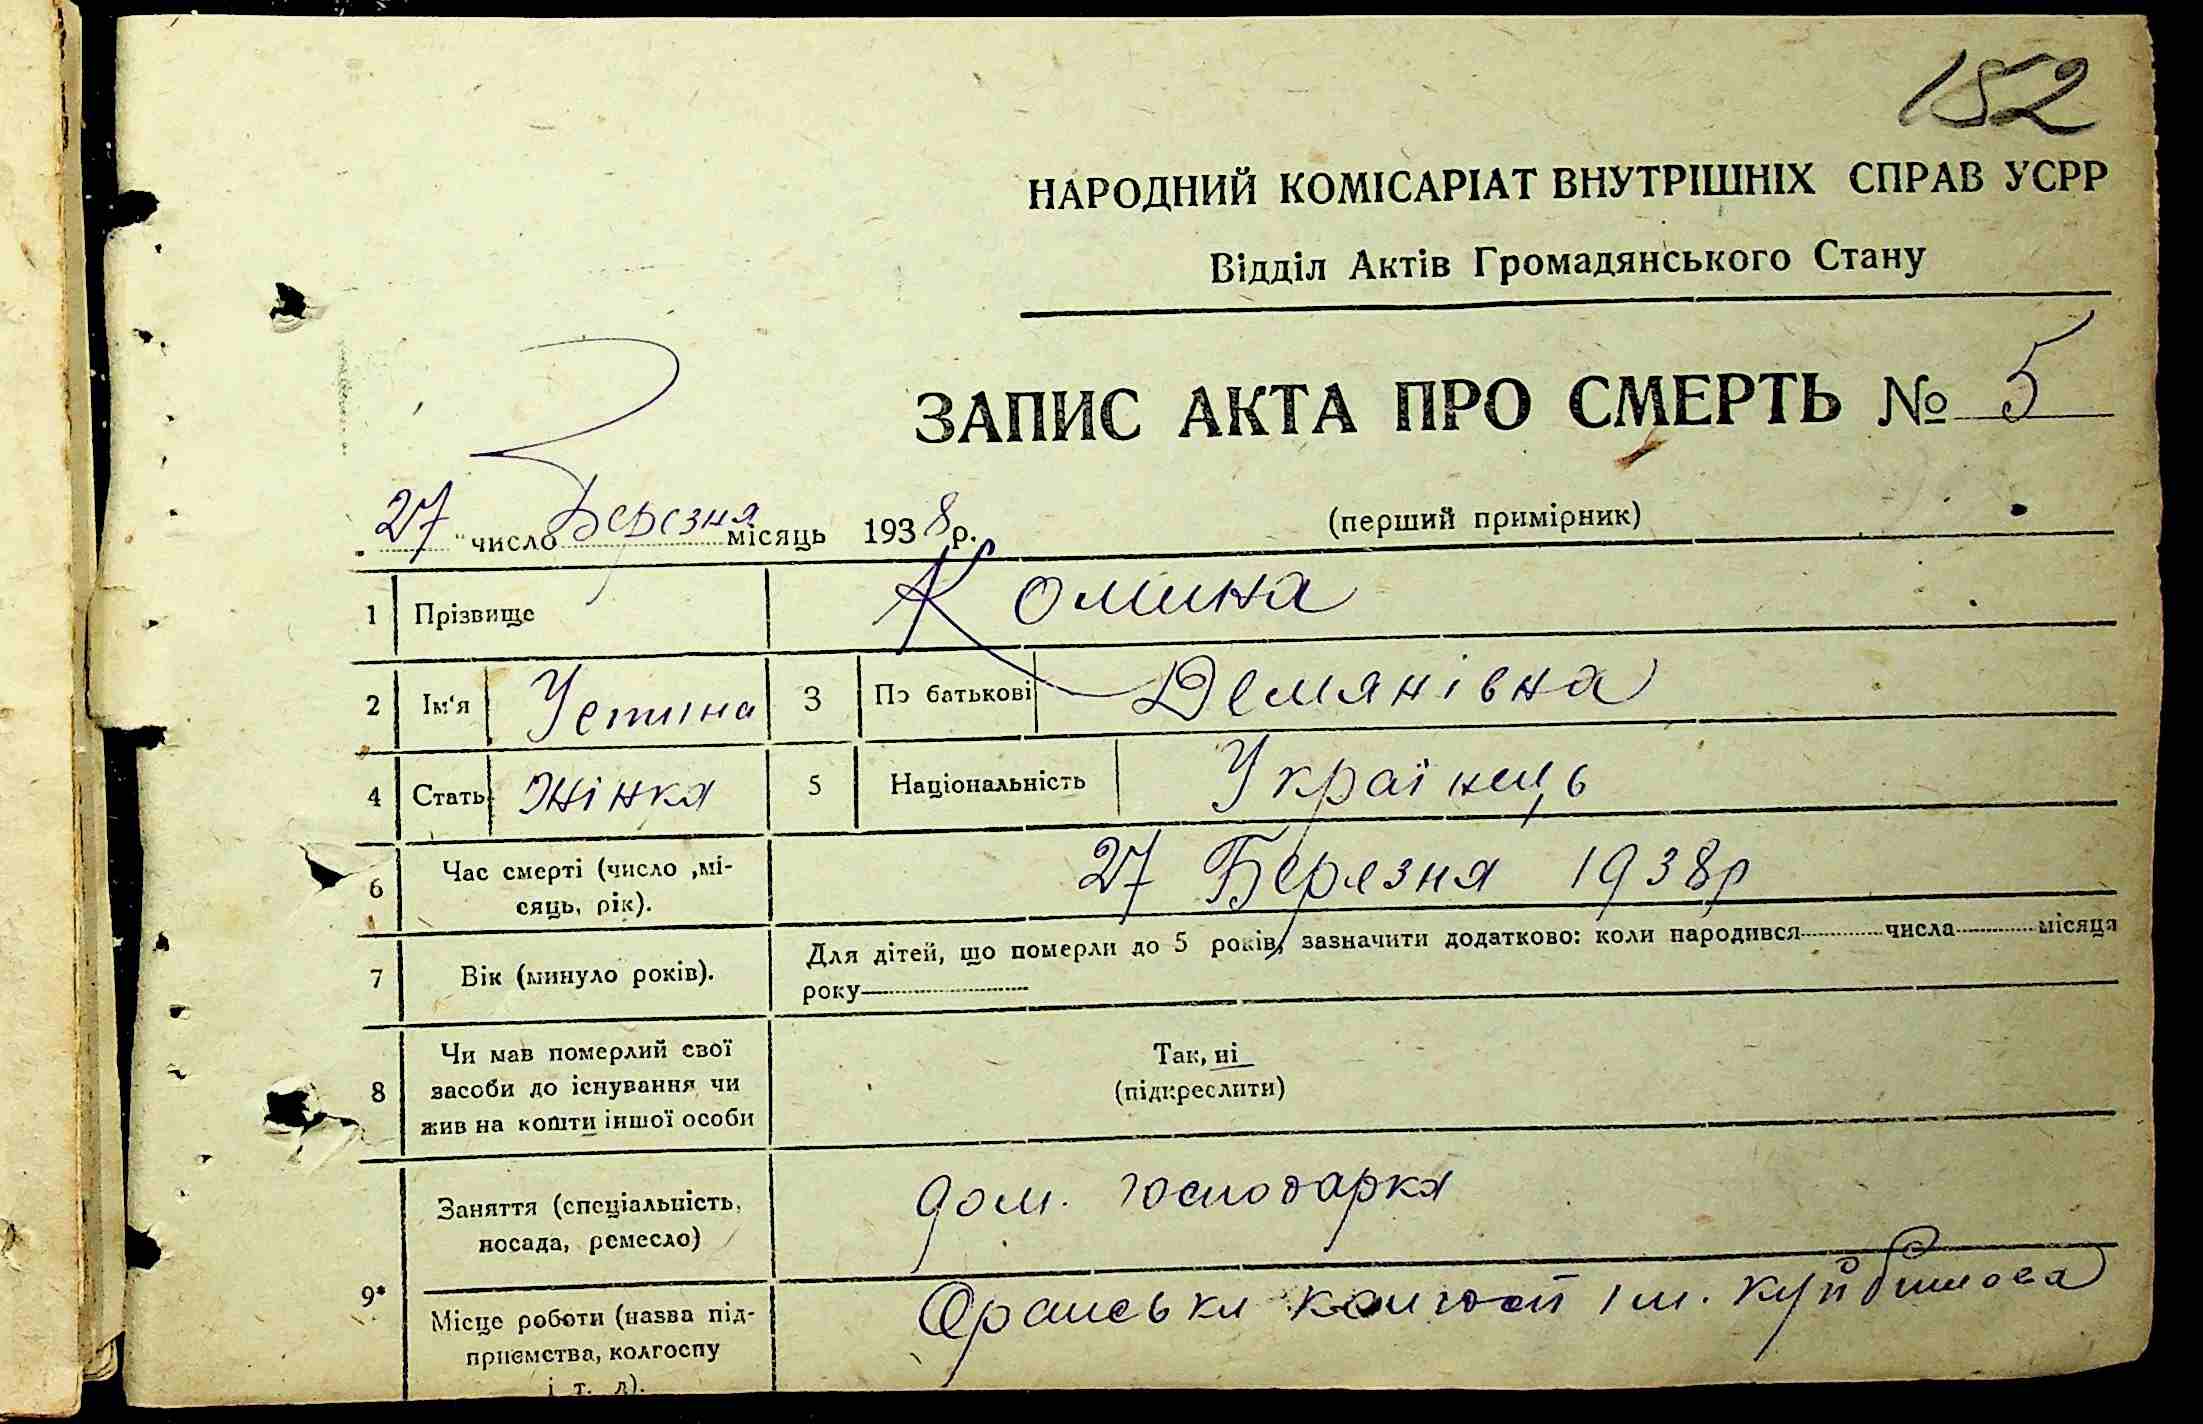 152
НАРОДНИЙ КОМІСАРІАТ ВНУТРІШНІХ СПРАВ УСРР
Відділ Актів Громадянського Стану
ЗАПИС АКТА ПРО СМЕРТЬ № 5
27 " число Березня місяць 1938 р. (перший примірник)
1 Прізвище Комина
2 Ім'я Устина 3 По батькові Демянівна
4 Стать Жінка 5 Національність Українець
6 Час смерті (число ,мі-
сяць, рік). 27 Березня 1938 р
7 Вік (минуло років). Для дітей, що померли до 5 років, зазначити додатково: коли народився числа місяця
року
8 Чи мав померлий свої
засоби до існування чи
жив на кошти іншої особи
Так, ні
(підкреслити)
9*
Заняття (спеціальність,
посада, ремесло) дом. господарка
Місце роботи (назва під-
приємства, колгоспу
і т. д). колгосп ім. Куйбишова